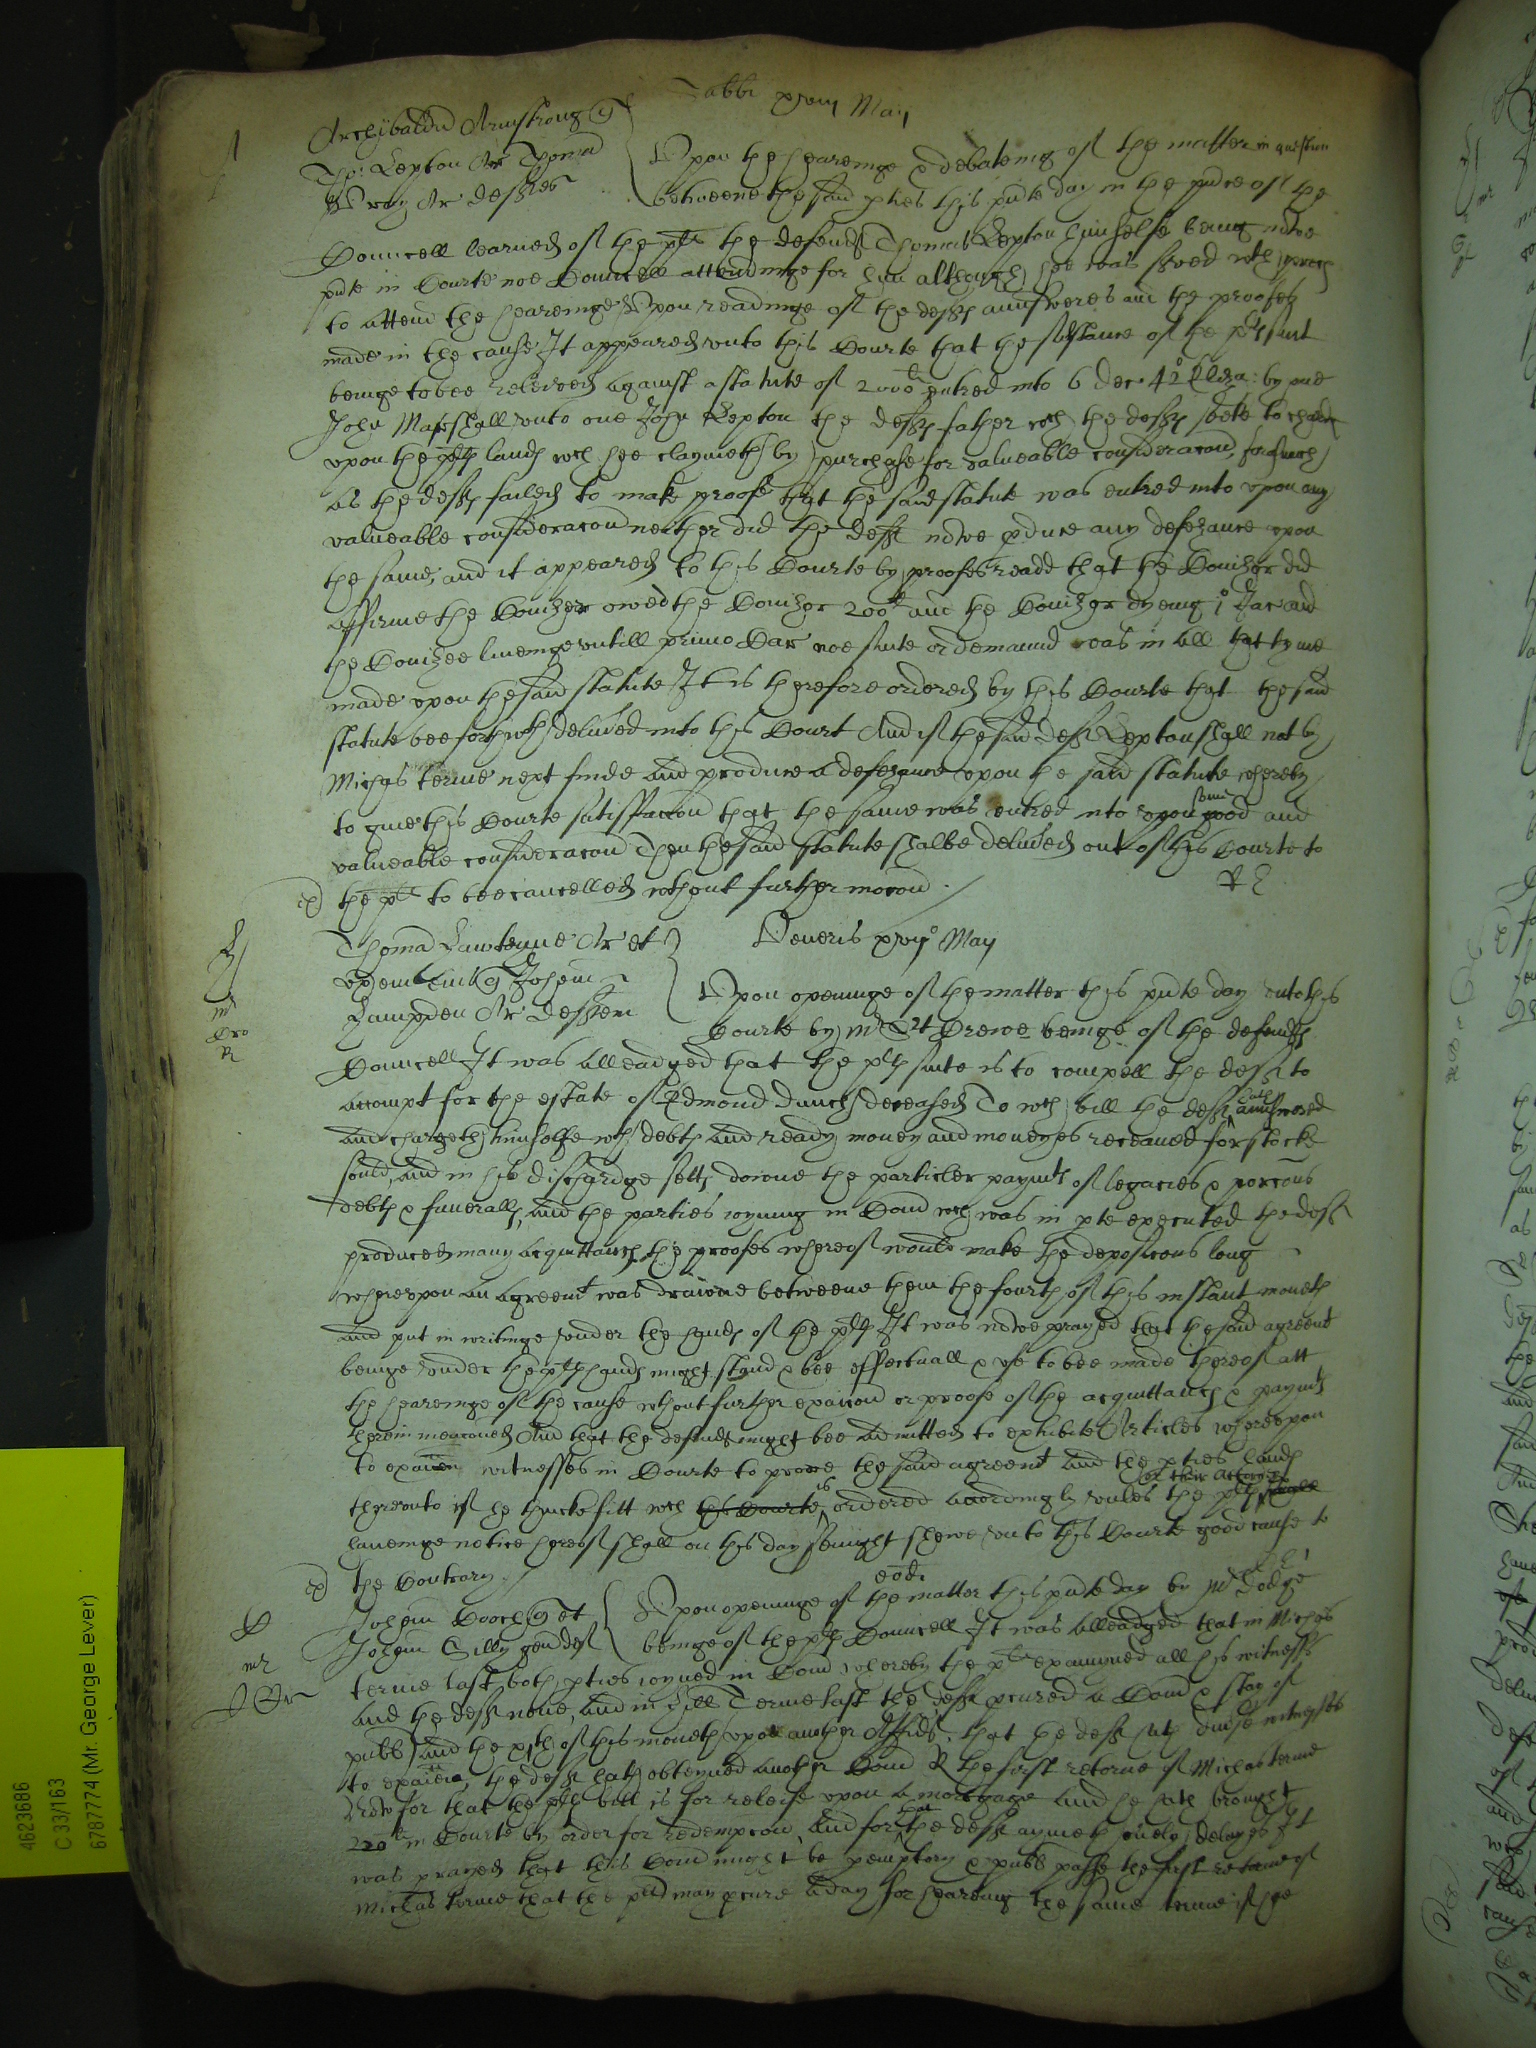 Sabbi xxvij May
Archybaldu Armstrong q
Tho: Lepton Ar Thoma
Wray Ar deftes
Upon the heareinge & debateing of the matter in question
betweene the said pties this pnte day in the pnce of the
Councell learned of the plts the defend Thomas Lepton himselfe being nowe
pnte in Courte noe Councell attendinge for him although hee was served wth proces
to attend the heareinge Upon readinge of the defts answeres and the proofes
made in the cause It appeared unto this Courte that the substance of the plts suit
beinge to bee releived against a statute of 2000li entred into 6 Dec. 42o Eliza: by one
John Marshall unto one John Lepton the defts father wch the deft
upon the plts lands wch hee claymeth by purchase for valueable consideracon, forasmuch
as the deft failed to make proofe that the said statute was entred into upon any
valueable consideracon neither did the deft nowe pduce any defezance upon
the same, and it appeared to this Courte by proofes readd that the Conizor did
affirme the Conizee owed the Conizor 200li and the Conizor dyeing 1o Jac and
the Conizee liveinge untill primo Car noe suite or demaund was in all that tyme
made upon the said statute It is therefore ordered by this Courte that the said
statute bee forthwth delivered into this Court And if the said deft Lepton shall not by
Michas terme next finde and produce a defezance upon the said statute whereby
to give this Courte satisfaccon that the same was entred into upon some good and
valueable consideracon Then the said statute shalbe delivered out of this Courte to
the plt to bee cancelled wthout further mocon
Veneris xxvjo May
Thoma Lawley Ar et
uxem q Johem
Hampden Ar deftem
Upon openinge of the matter this pnte day unto this
Courte by Mr Srt Drewe beinge of the defends
Councell It was alleadged that the plts suite is to compell the deft to
accompt for the estate of Edmond Dunch deceased To wch bill the deft hath answered
and chargeth himselfe wth debts and ready money and moneyes received for stocke
sould, and in his dischardge setts downe the particler paymts of legacies & porcons
debts & funeralls, and the parties ioyning in Comd wch was in pte executed the deft
produced many acquittances the proofes whereof would make the deposicons long
whereupon an agreemt was drawne betweene them the fourth of this instant moneth
and put in writinge under the hands of the plts It was nowe prayed that the said agreemt
beinge under the plts hands might stand & bee effectuall & use to bee made thereof att
the heareinge of the cause wthout further exaicon or proofe of the acquittances & paymts
therein menconed And that the defend might bee admitted to exhibite Articles whereupon
to exaien witnesses in Courte to prove the said agreemt and the pties hands
thereunto if he thincke fitt wch this Courte is ordered accordingly unles the plts or their Attorney
haveinge notice hereof shall on this day sennight shewe unto this Courte good cause to
the Contrary
eod.
Johem Gooch q et
Johem Silly gen deft
Upon openinge of the matter this pnte day by Mr Dodge
beinge of the plts Councell It was alleadged that in Michas
terme last both pties ioyned in Comd whereby the plt examyned all his witnesses
and the deft none, and in Hill Terme last the deft pcured a Comd & stay of
publ and the xth of this moneth upon another Affidt. that the deft hath divse witnesses
to exaien, the deft hath obteyned another Comd the first retorne of Michas terme
Nowe for that the plts bill is for releife upon a mortgage and he hath brought
220li in Courte by order for redempcon, and for that the deft aymeth onely delayes It
was prayed that this Comd might be pemptory & publ passe the first retorne of
Michas terme that the plt may pcure a day for heareing the same terme if he
4623686
C 33/163
6787774 (Mr. George Lever)